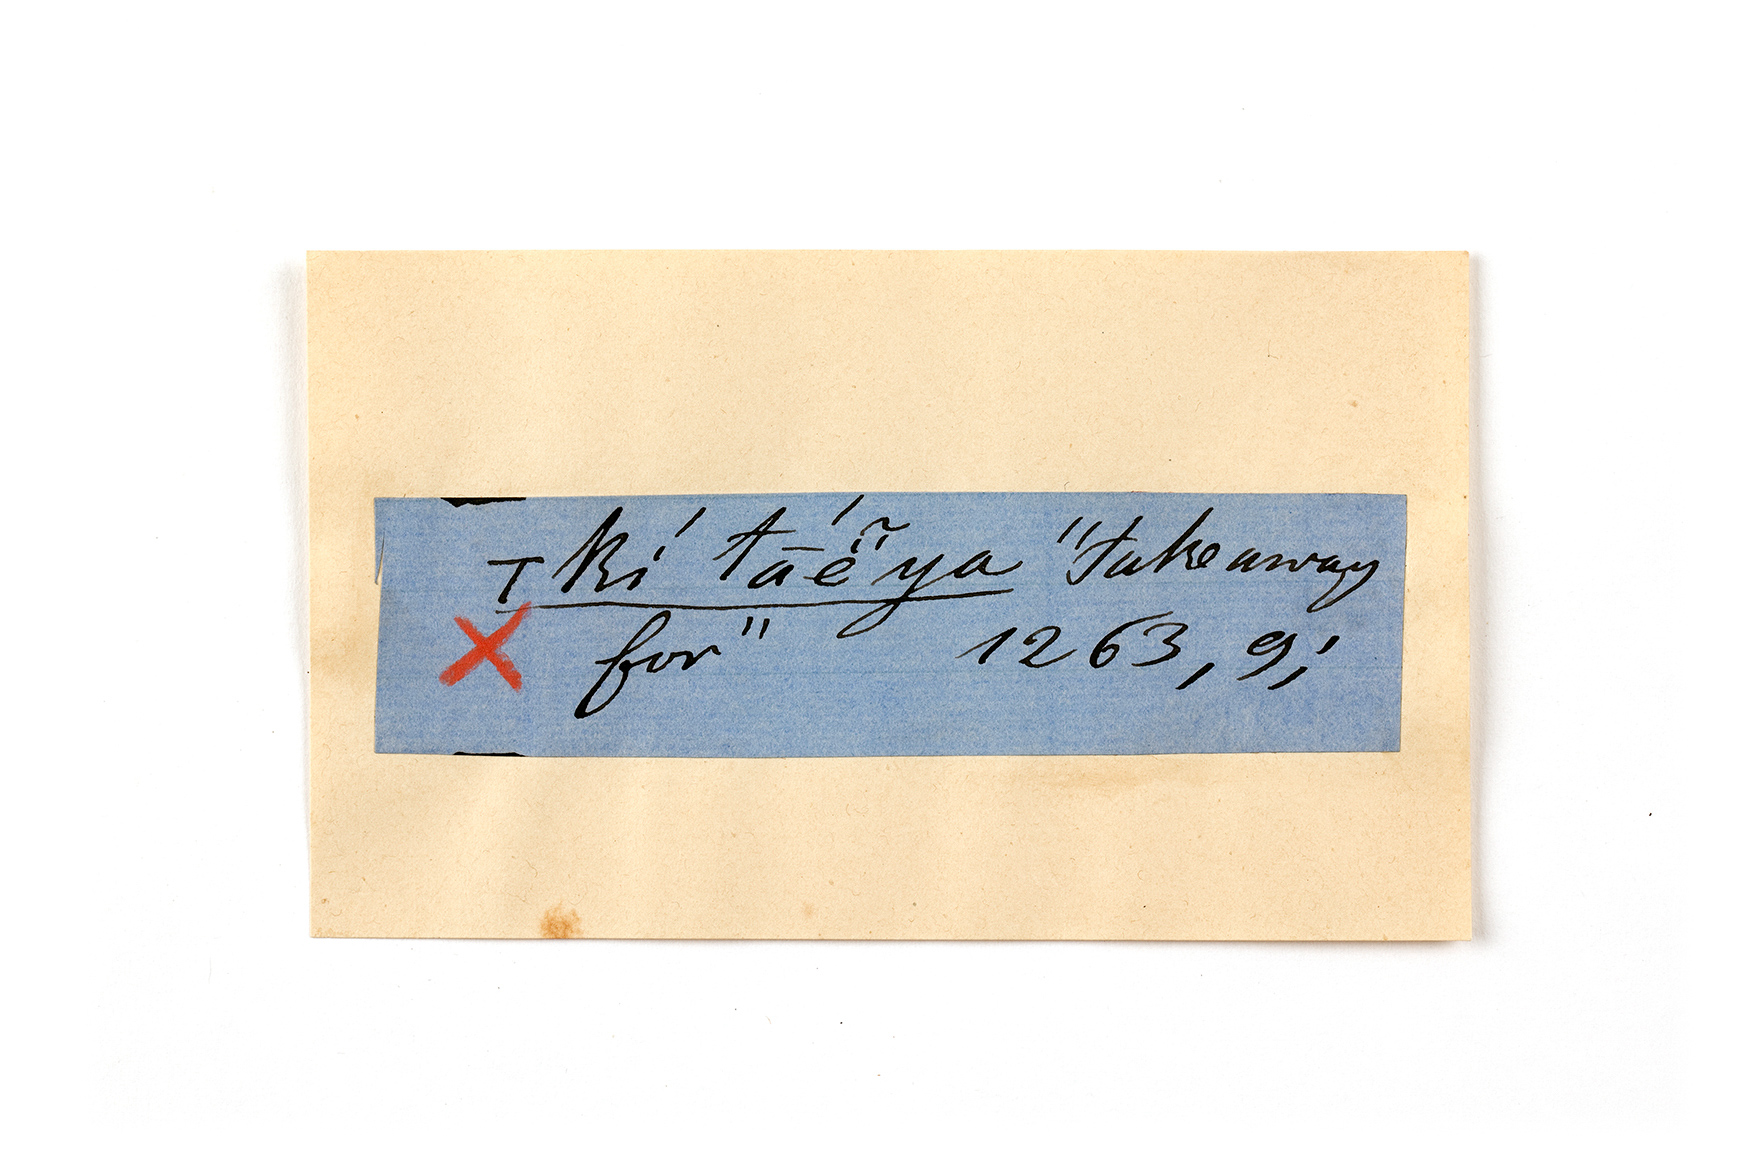 T kí tā́ë̃ya "take away
for" 1263, 9;